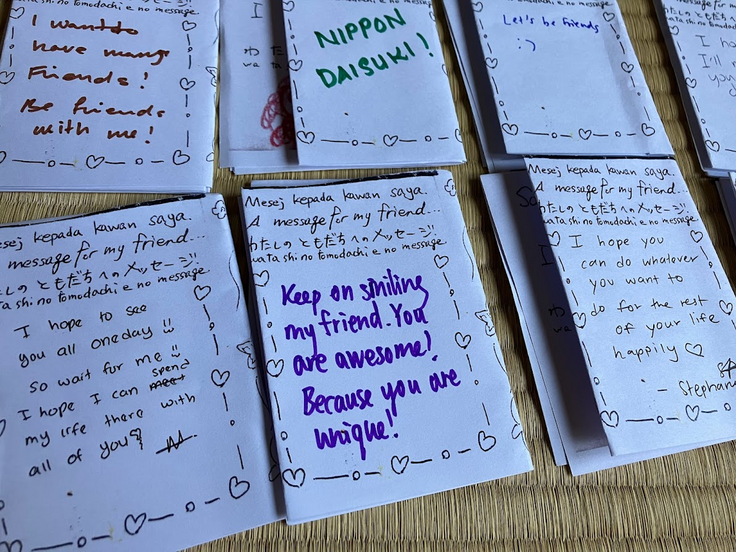 I want to
have many
Friends!
Be friends
with me!
I
わ
wa
NIPPON
DAISUKI!
Let's be friends
:)
I ho
I'll
you
esej kepada kawan saya.
message for my friend...
たしの ともだち への メッセージ!!
ta shi no tomodachi e no message.
I hope to see
you all oneday!!
so wait for me!!
I hope I can spend
my life there with
all of you
Mesej kepada kawan saya.
A message for my friend...
わたしの ともだち への メッセージ!!
wata shi no tomodachi e no message.
Keep on smiling
my friend. You
are awesome!
Because you are
unique!
So
I
わ
wa
Mesej kepada kawan saya.
A message for my friend...
わたしの ともだち への メッセージ!!
wata shi no tomodachi e no message.
I hope you
can do whatever
you want to
do for the rest
of your life
happily
- Stephan